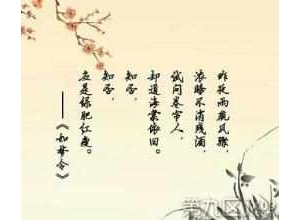 昨夜雨疏风骤，
浓睡不消残酒，
试问卷帘人，
却道海棠依旧。
知否，
知否，
应是绿肥红瘦。
——《如梦令》
第九区